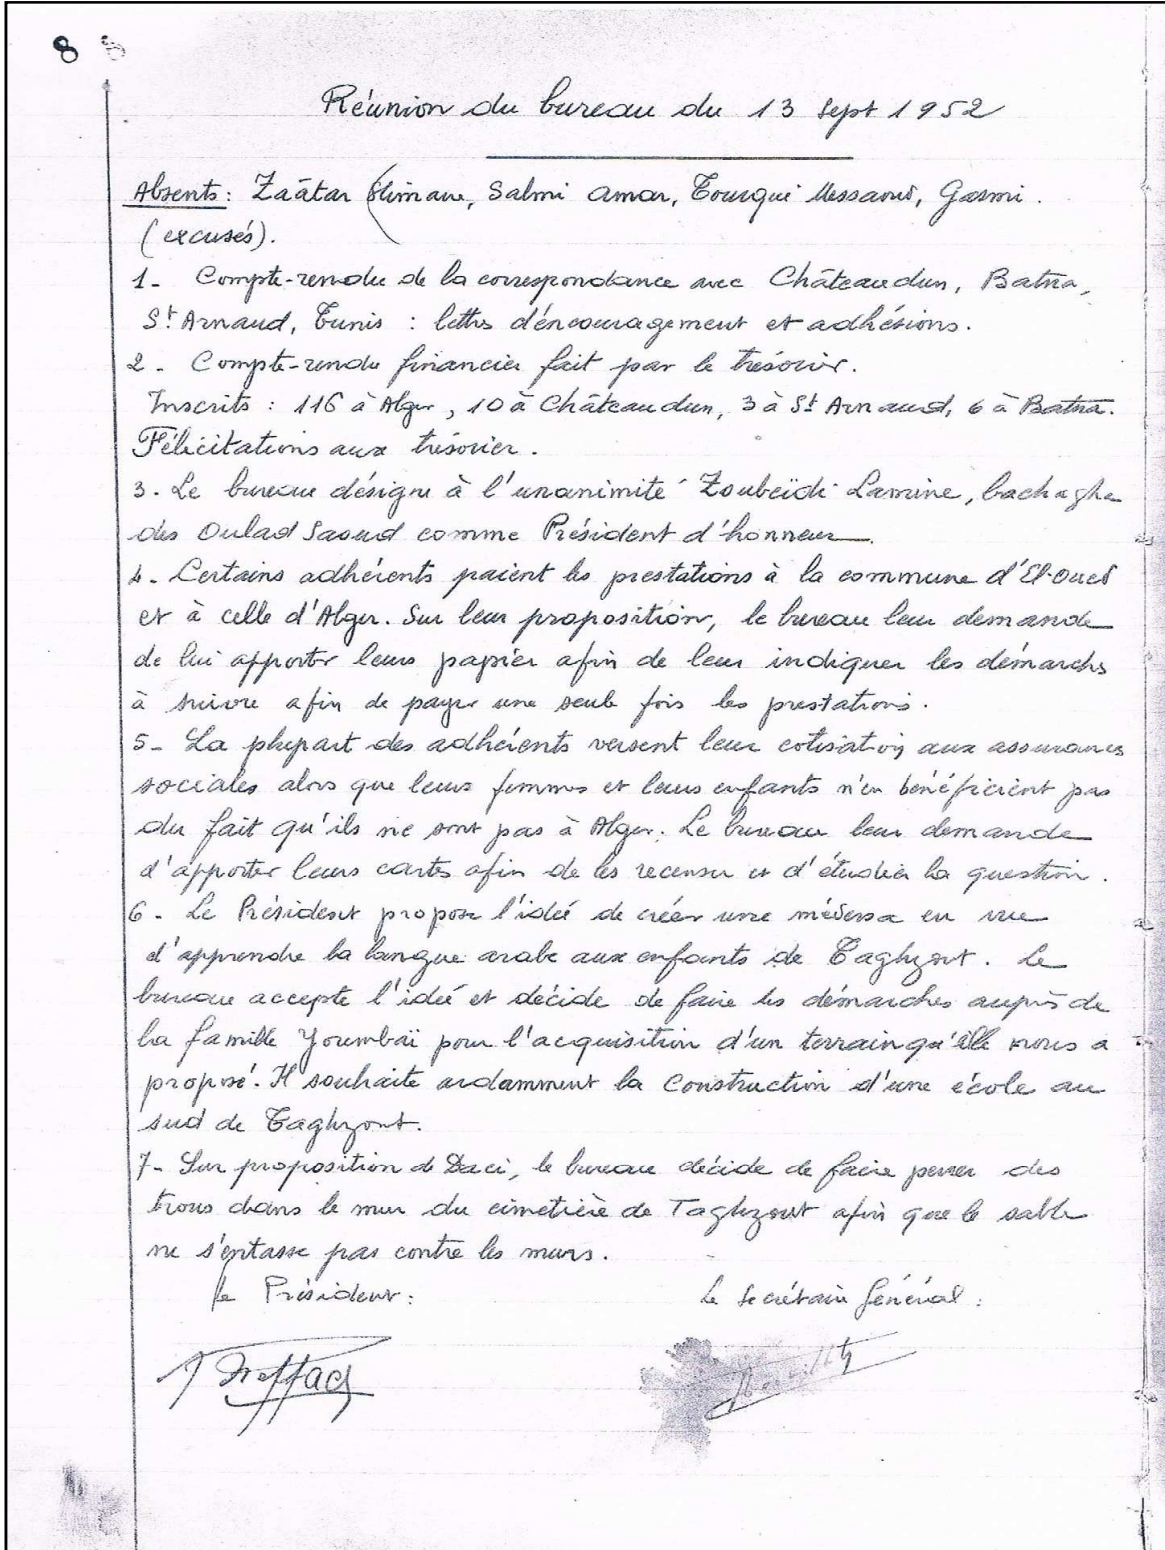 8
Réunion du bureau du 13 Sept 1952
Absents : Zaâtar Slimane, Salmi Amar, Tourqui Messaoud, Gasmi.
(excusés).
1- Compte-rendu de la correspondance avec Châteaudun, Batna,
St Arnaud, Tunis : lettres d'éncouragement et adhésions.
2- Compte-rendu financier fait par le trésorier.
Inscrits : 116 à Alger, 10 à Châteaudun, 3 à St Arnaud, 6 à Batna.
Félicitations aux trésorier.
3- Le bureau désigne à l'unanimité Zoubeïdi Lamine, bachagha
des Oulad Saoud comme Président d'honneur.
4- Certains adhérents paient les prestations à la commune d'El-Oued
et à celle d'Alger. Sur leur proposition, le bureau leur demande
de lui apporter leurs papier afin de leur indiquer les démarches
à suivre afin de payer une seule fois les prestations.
5- La plupart des adhérents versent leur cotisation aux assurances
sociales alors que leurs femmes et leurs enfants n'en bénéficient pas
du fait qu'ils ne sont pas à Alger. Le bureau leur demande
d'apporter leurs cartes afin de les recenser et d'étudier la question.
6- Le Président propose l'idée de créer une médersa en vue
d'apprendre la langue arabe aux enfants de Taghzout. Le
bureau accepte l'idée et décide de faire les démarches auprès de
la famille Youmbaï pour l'acquisition d'un terrain qu'elle nous a
proposé. Il souhaite ardamment la construction d'une école au
sud de Taghzout.
7- Sur proposition de Daci, le bureau décide de faire percer des
trous dans le mur du cimetière de Taghzout afin que le sable
ne s'entasse pas contre les murs.
Le Président :
Le Secrétaire Général :